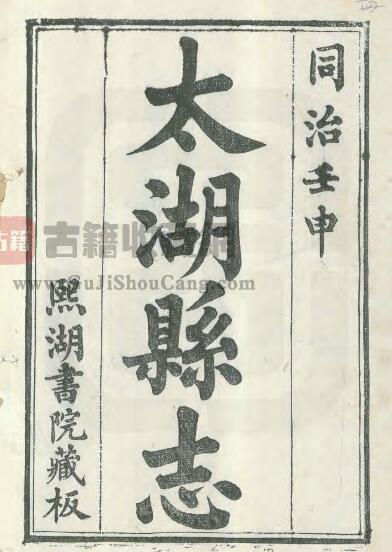 同治壬申
太湖縣志
熙湖書院藏板
古籍
古籍收藏
www.GuJiShouCang.com